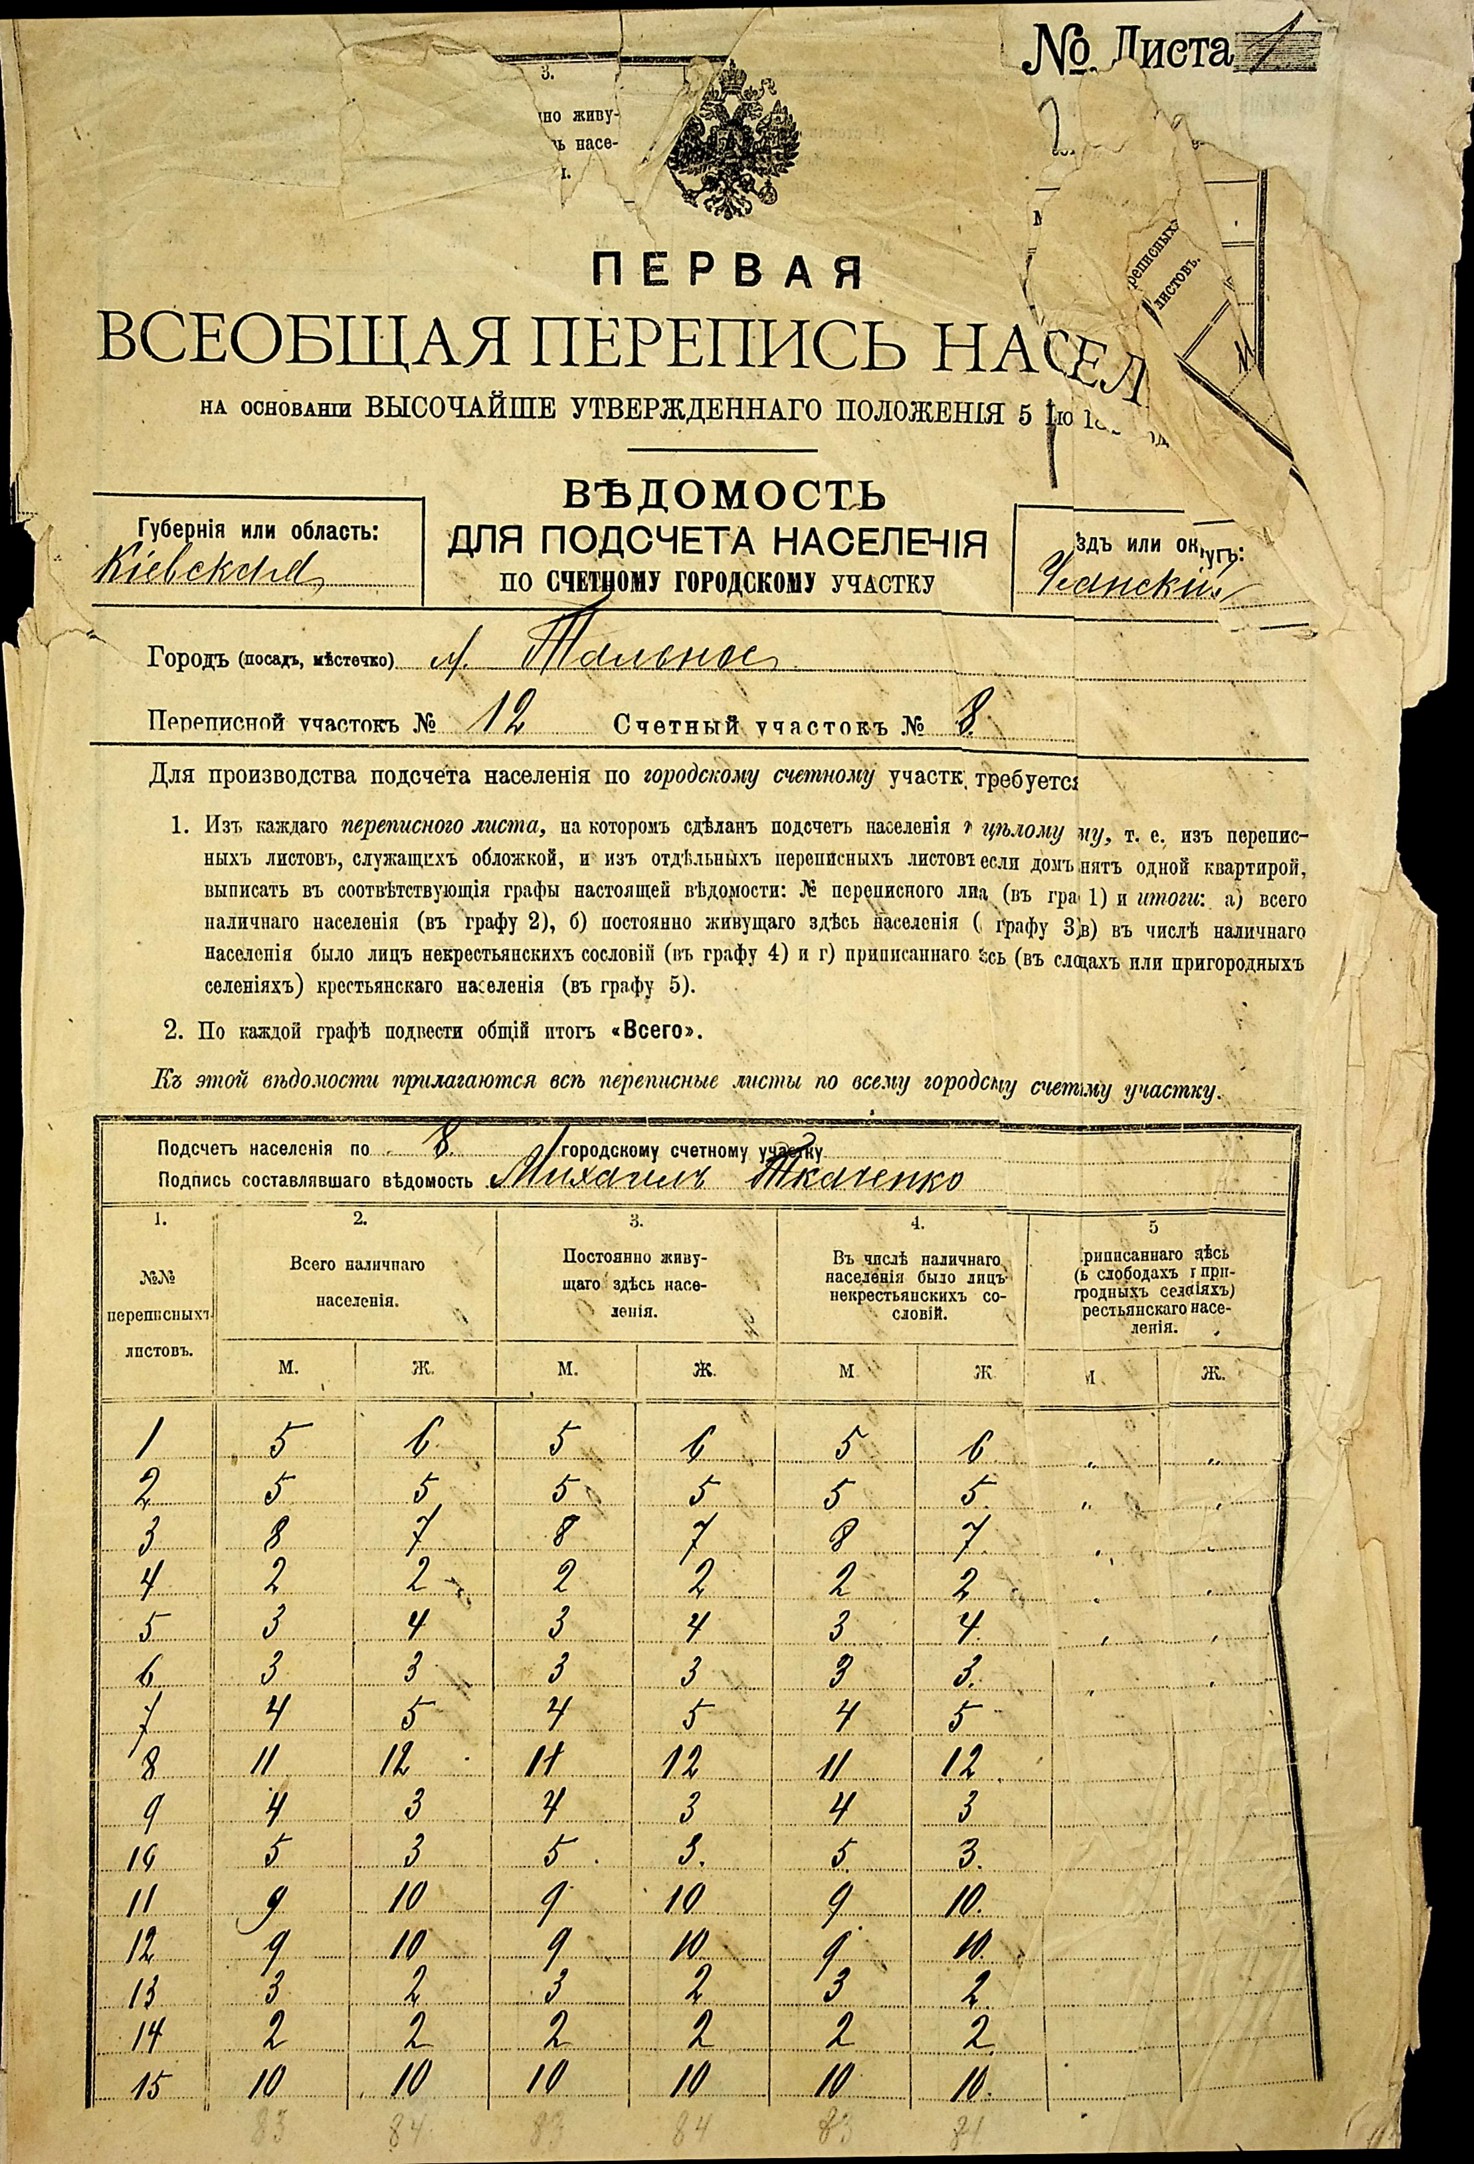 № Листа 1
3.
но живу-
ь насе-
реписныхъ
листовъ.
ПЕРВАЯ
ВСЕОБЩАЯ ПЕРЕПИСЬ НАСЕЛ
НА ОСНОВАНІИ ВЫСОЧАЙШЕ УТВЕРЖДЕННАГО ПОЛОЖЕНІЯ 5 Ію
ВѢДОМОСТЬ
ДЛЯ ПОДСЧЕТА НАСЕЛЕНІЯ
ПО СЧЕТНОМУ ГОРОДСКОМУ УЧАСТКУ
Губернія или область:
Кіевская
здъ или округъ:
Уманскій
Городъ (посадъ, мѣстечко) м. Тальное
Переписной участокъ № 12 Счетный участокъ № 8.
Для производства подсчета населенія по городскому счетному участк требуется
1. Изъ каждаго переписного листа, на которомъ сдѣланъ подсчетъ населенія п цѣлому му, т. е. изъ перепис-
ныхъ листовъ, служащихъ обложкой, и изъ отдѣльныхъ переписныхъ листовъ если домъ нятъ одной квартирой,
выписать въ соотвѣтствующія графы настоящей вѣдомости: № переписного ли а (въ гра 1) и итоги: а) всего
наличнаго населенія (въ графу 2), б) постоянно живущаго здѣсь населенія ( графу 3) в) въ числѣ наличнаго
населенія было лицъ некрестьянскихъ сословій (въ графу 4) и г) приписаннаго сь (въ сл дахъ или пригородныхъ
селеніяхъ) крестьянскаго населенія (въ графу 5).
2. По каждой графѣ подвести общій итогъ «Всего».
Къ этой вѣдомости прилагаются всѣ переписные листы по всему городскому счетному участку.
Подсчетъ населенія по 8. городскому счетному участку
Подпись составлявшаго вѣдомость Михаилъ Ткаченко
1. 2. 3. 4. 5
№№
переписныхъ
листовъ.
Всего наличнаго
населенія.
Постоянно живу-
щаго здѣсь насе-
ленія.
Въ числѣ наличнаго
населенія было лицъ
некрестьянскихъ со-
словій.
риписаннаго здѣсь
(ъ слободахъ и при-
гродныхъ селеніяхъ)
рестьянскаго насе-
ленія.
М. Ж. М. Ж. М Ж М Ж.
1 5 6 5 6 5 6 „ „
2 5 5 5 5 5 5. „ „
3 8 7 8 7 8 7 „ „
4 2 2 2 2 2 2 „ „
5 3 4 3 4 3 4. „ „
6 3 3 3 3 3 3. „ „
7 4 5 4 5 4 5
8 11 12 11 12 11 12
9 4 3 4 3 4 3
10 5 3 5 3. 5 3.
11 9 10 9 10 9 10.
12 9 10 9 10 9 10.
13 3 2 3 2 3 2
14 2 2 2 2 2 2
15 10 10 10 10 10 10.
83 84 83 84 83 84